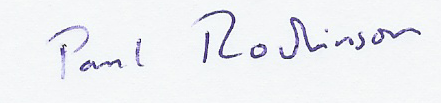 Paul Rodkinson